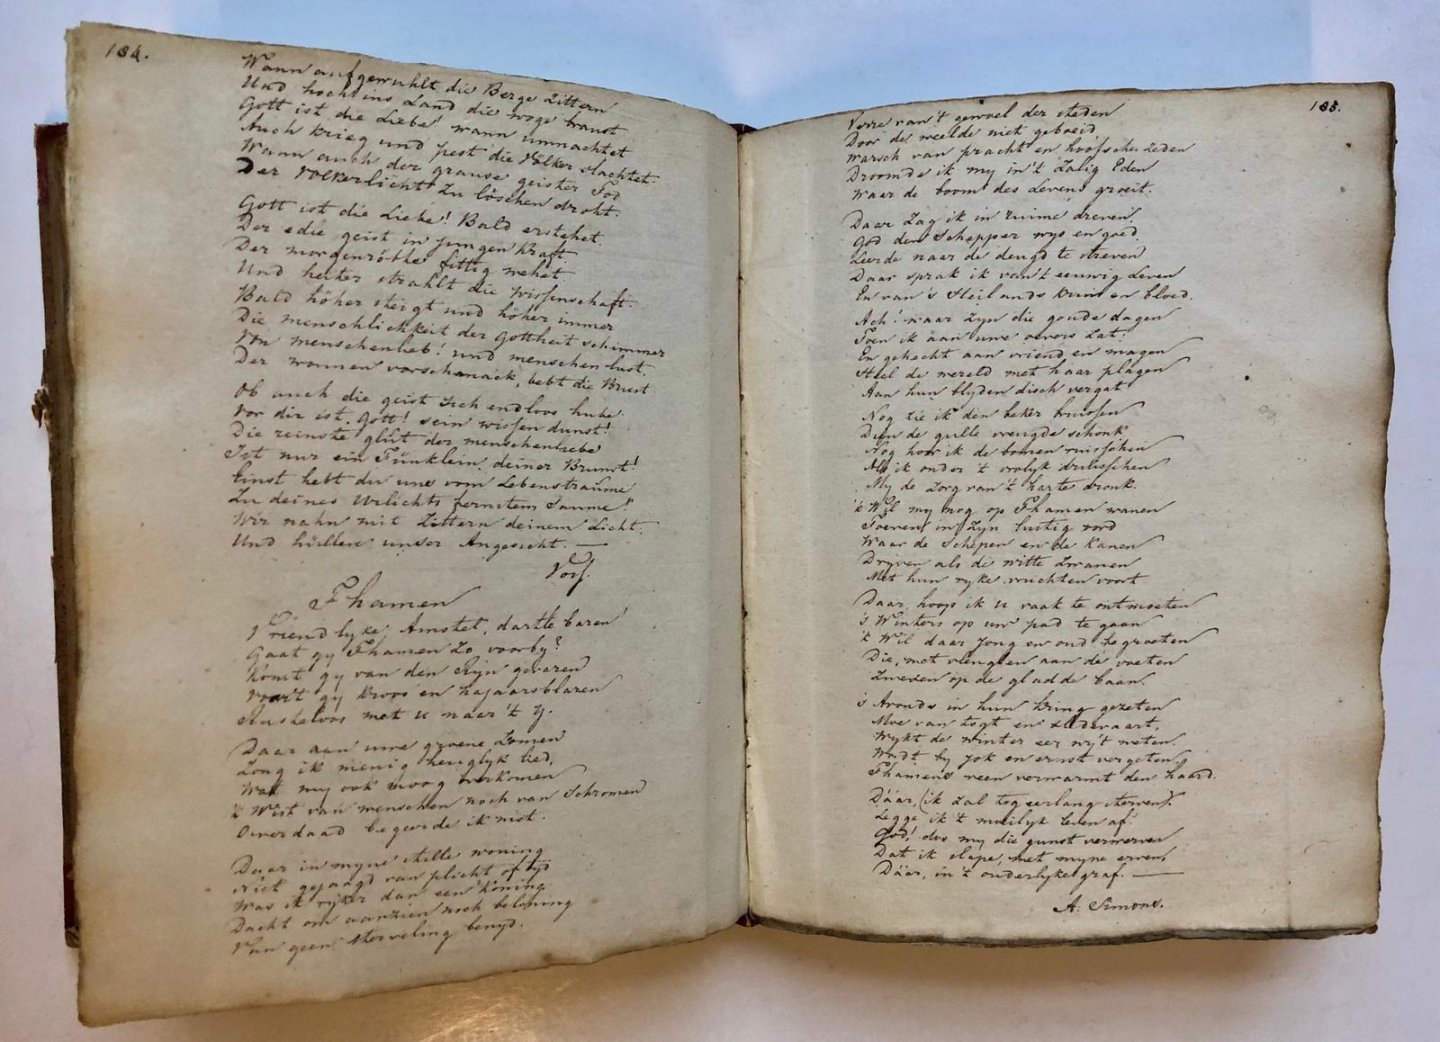 184.
Wann aufgewühlt die Berge zittern
Und hoch ins Land die woge braust
Gott ist die Liebe! wann umnachtet
Auch Krieg und pest die Völker schlachtet.
Wann auch der grause geister Tod
Der Völkerlicht zu löschen droht.
Gott ist die Liebe! Bald erstehet
Der edle geist in jungen Kraft
Der morgenröthe fittig wehet
Und heiter strahlt die Wissenschaft.
Bald höher steigt und höher immer
Die menschlichkeit der Gottheit schimmer
Von menschenlieb! und menschenlust.
Der wonnen vorschmack, bebt die Brust
Ob auch die geist sich endloos hube
Vor dir ist, Gott! sein wissen dunst!
Die reinste glut der menschenliebe
Ist nur ein Fünklein deiner Brunst!
Einst hebt du uns vom Lebenstraume
Zu deines Urlichts fernstem Saume!
Wir nahn mit Zittern deinem Licht
Und hüllen unser Angesicht. —
Vosf.
Thamen
Vriendlyke Amstel, dartle baren
Gaat gy Thamen zo voorby?
Komt gy van den Rijn gevaren
Voert gy kroos en hazaarsblaren
Rusteloos met u naar 't Y.
Daar aan uwe groene zomen
Zong ik menig heuglyk lied,
Wat my ook moog overkomen
'k Wist van menschen noch van Schromen
Overdaad begeerde ik niet.
Daar in myne stille woning
Niet gejaagd van plicht of tyd
Was ik rijker dan een Koning
Dacht om aanzien noch beloning
Van geen sterveling benyd.
185.
Verre van 't gewoel der steden
Door de weelde niet geboeid
Warsch van pracht en hoofsche zeden
Droomde ik my in 't zalig Eden
Waar de boom des Levens groeit.
Daar zag ik in ruime dreven
God den Schepper wys en goed
Leerde naar de deugd te streven
Daar sprak ik van 't eeuwig Leven
En van 's Heilands kruis en bloed.
Ach! waar zyn die goude dagen
Toen ik aan uwe oevers zat!
En gehecht aan vriend en magen
Heel de wereld met haar plagen
Aan hun blyden disch vergat
Nog zie ik den beker bruissen
Dien de gulle vreugde schonk
Nog hoor ik de bomen ruisschen
Als ik onder 't vrolyk druisschen
My de zorg van 't harte dronk.
'k Wil my nog op Thamen wanen
Toeven in zyn lustig oord
Waar de Schepen en de Kanen
Dryven als de witte Zwanen
Met hun ryke vruchten voort
Daar, hoop ik u vaak te ontmoeten
's Winters op uw pad te gaan
'k Wil daar jong en oud begroeten
Die, met vleuglen aan de voeten
Zweven op de gladde baan.
's Avonds in hun kring gezeten
Moe van togt en sledevaart,
Wykt de winter eer wy't weten
Wordt by jok en ernst vergeten
Thamens veen verwarmt den haard.
Dáar, (ik zal tog eerlang sterven)
Legge ik 't moeilyk leven af.
God! doe my die gunst verwerven
Dat ik slape, met myne erven
Dáar, in 't ouderlyke graf. —
A. Simons.